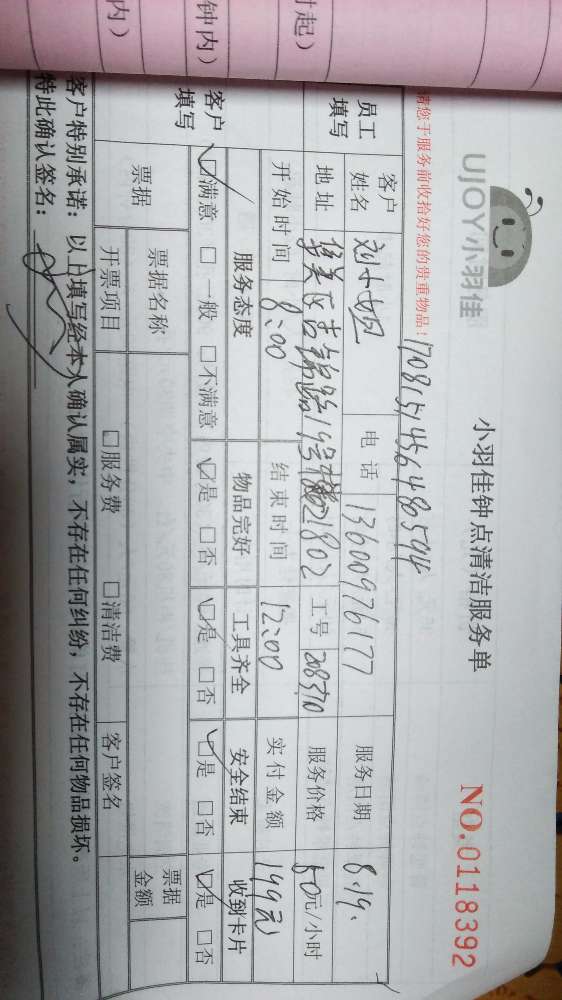 时起）
钟内）
内）
UJOY小羽佳
小羽佳钟点清洁服务单
NO.0118392
请您于服务前收拾好您的贵重物品！
1708151456480594
员工填写
客户姓名 刘小姐 电话 13600976177 服务日期 8.19.
地址 华美区吉锦路19号楼21802 工号 208370 服务价格 50元/小时
开始时间 8:00 结束时间 12:00 实付金额 199元
客户填写
服务态度 物品完好 工具齐全 安全结束 收到卡片
☑满意 □一般 □不满意 ☑是 □否 ☑是 □否 ☑是 □否 ☑是 □否
票据 票据名称 票据金额
开票项目 □服务费 □清洁费 客户签名
客户特别承诺：以上填写经本人确认属实，不存在任何纠纷，不存在任何物品损坏。
特此确认签名：